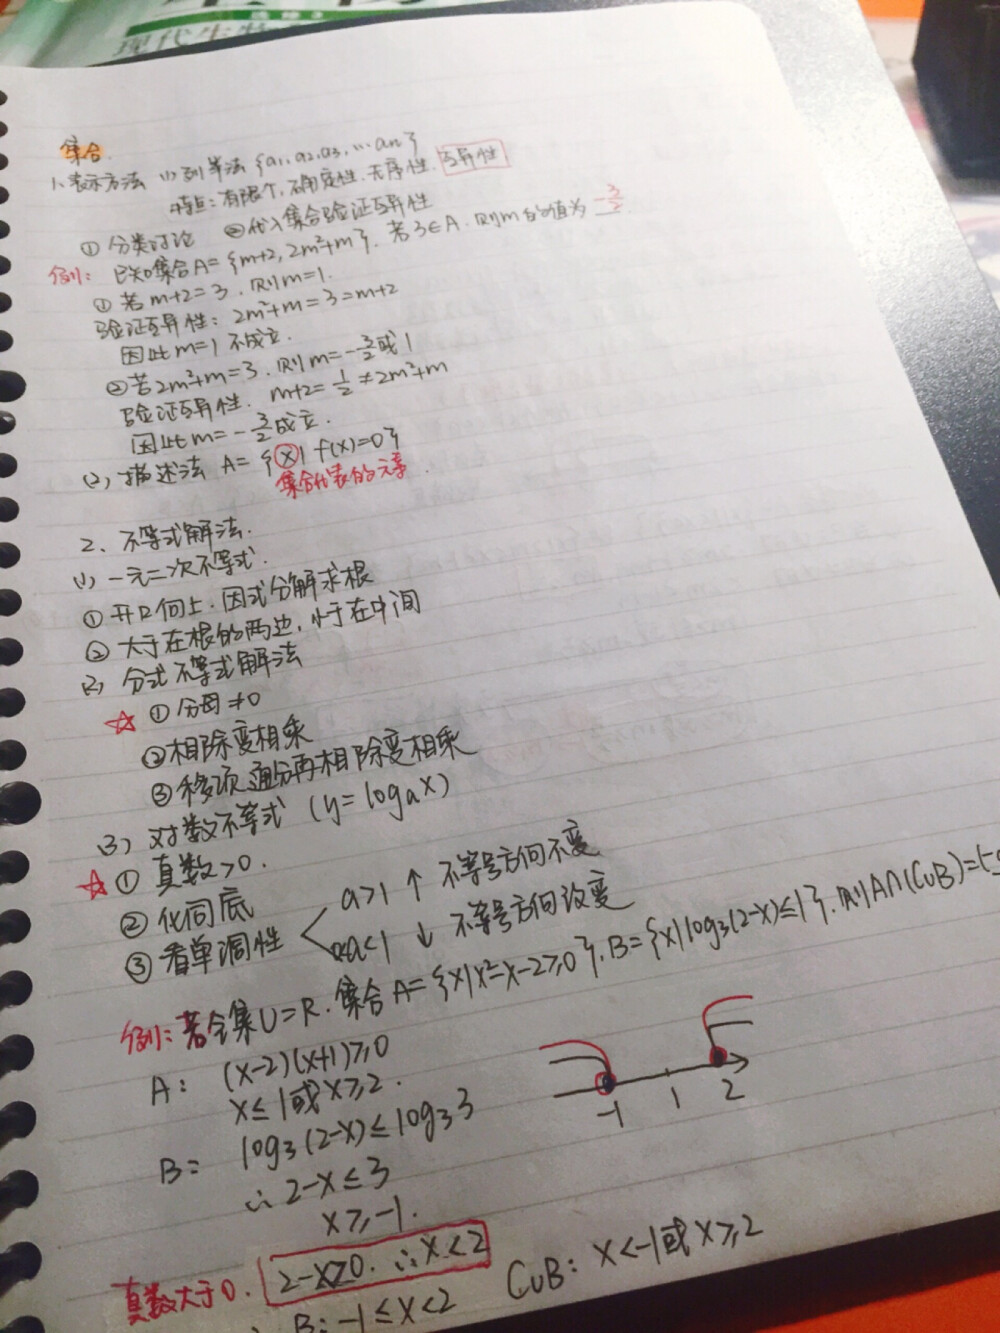 选修3
现代生物
集合.
1、表示方法 (1) 列举法 {a₁, a₂, a₃, … aₙ}
特点：有限个, 确定性. 无序性. 互异性
① 分类讨论 ②代入集合验证互异性
例: 已知集合A={m+2, 2m²+m}. 若3∈A. 则m的值为 -3/2.
① 若m+2=3. 则m=1.
验证互异性: 2m²+m=3=m+2
因此m=1不成立.
②若2m²+m=3. 则m=-3/2或1
验证互异性. m+2=1/2≠2m²+m
因此m=-3/2成立.
(2) 描述法 A={x|f(x)=0}
集合代表的元素.
2、不等式解法.
(1) 一元二次不等式.
① 开口向上. 因式分解求根
② 大于在根的两边, 小于在中间
(2) 分式不等式解法
☆ ①分母≠0
②相除变相乘
③移项通分再相除变相乘
(3) 对数不等式 (y=logₐx)
☆ ① 真数>0.
② 化同底
③ 看单调性
a>1 ↑ 不等号方向不变
0<a<1 ↓ 不等号方向改变
例: 若全集U=R. 集合A={x|x²-x-2≥0}. B={x|log₃(2-x)≤1}. 则A∩(CᴜB)=
A: (x-2)(x+1)≥0
x≤1或x≥2.
B: log₃(2-x)≤log₃3
∴ 2-x≤3
x≥-1.
-1 1 2
真数大于0. 2-x>0. ∴x<2
∴ B: -1≤x<2 CᴜB: x<-1或x≥2